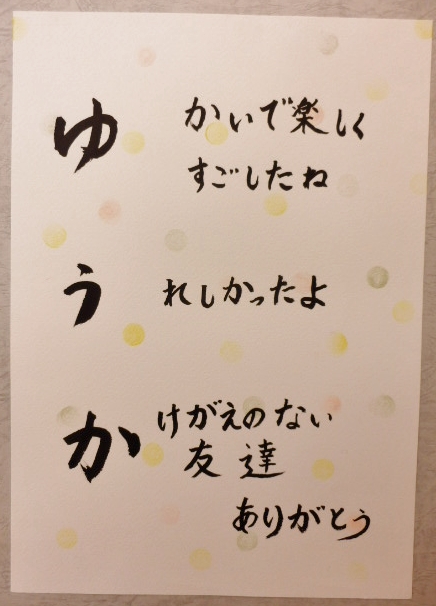 ゆ かいで楽しく
すごしたね
う れしかったよ
か けがえのない
友達
ありがとう